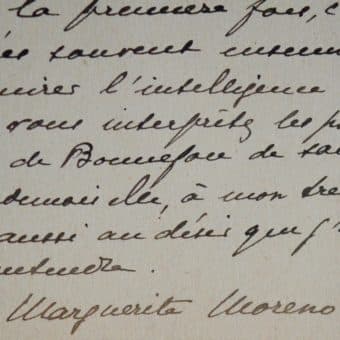 la première fois, c
souvent
mirer l'intelligence
vous interprétez les p
de Bonnefon de sa
demoiselle, à mon tre
aussi au désir que j'
entendre.
Marguerite Moreno